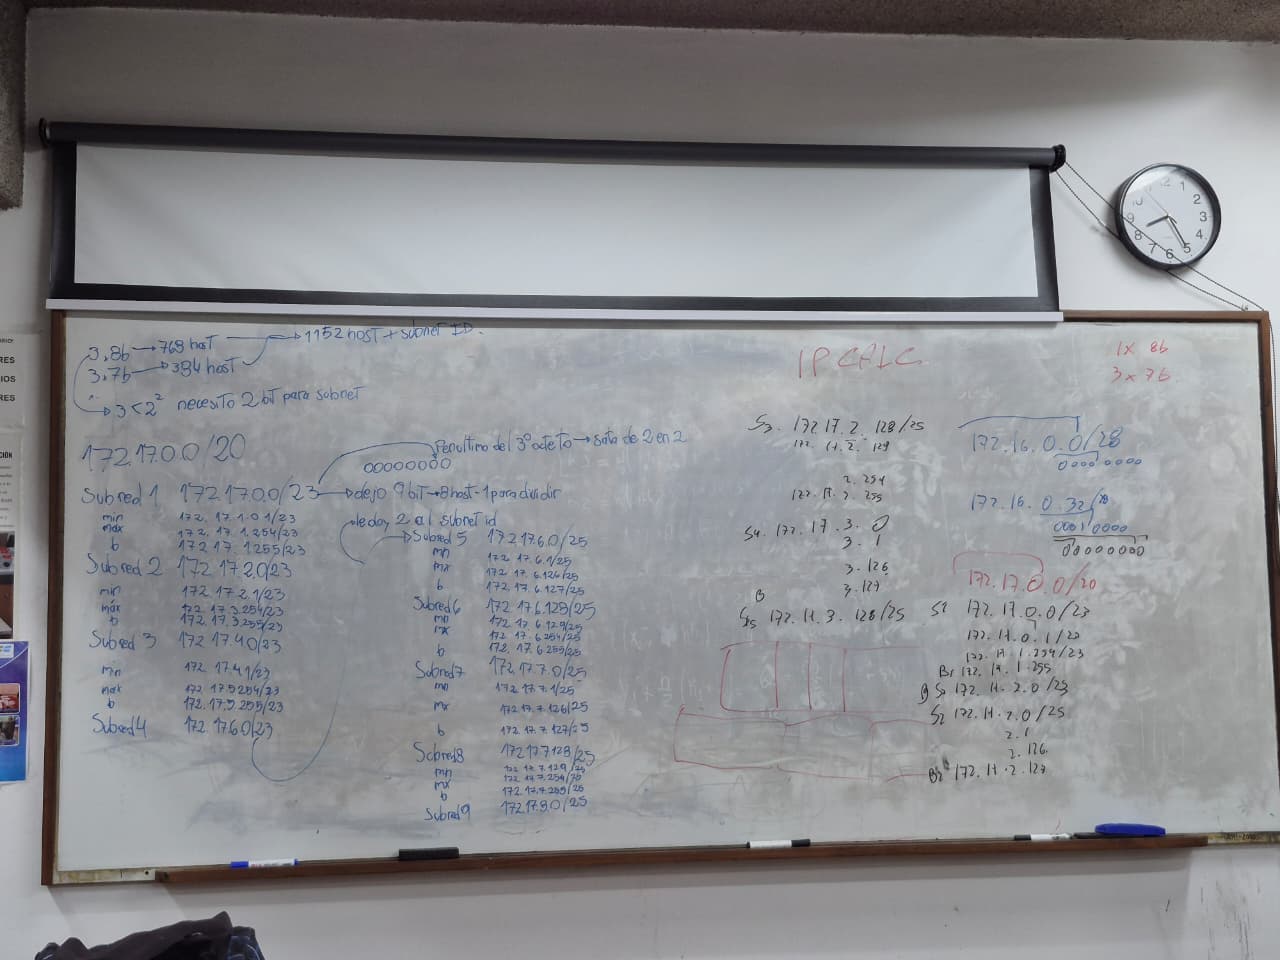 3.8b → 768 host → 1152 host + subnet ID.
3.7b → 384 host
3 < 2² necesito 2 bit para subnet
172.17.0.0/20
Penultimo del 3º octeto → salta de 2 en 2
00000000
Subred 1 172.17.0.0/23 → dejo 9 bit → 8 host - 1 para dividir
min 172.17.1.0.1/23
max 172.17.1.254/23
b 172.17.1.255/23
Subred 2 172.17.2.0/23
min 172.17.2.1/23
máx 172.17.3.254/23
b 172.17.3.255/23
Subred 3 172.17.4.0/23
min 172.17.4.1/23
max 172.17.5.254/23
b 172.17.5.255/23
Subred 4 172.17.6.0/23
le doy 2 al subnet id
Subred 5 172.17.6.0/25
mn 172.17.6.1/25
mx 172.17.6.126/25
b 172.17.6.127/25
Subred 6 172.17.6.128/25
mn 172.17.6.129/25
mx 172.17.6.254/25
b 172.17.6.255/25
Subred 7 172.17.7.0/25
mn 172.17.7.1/25
mx 172.17.7.126/25
b 172.17.7.127/25
Subred 8 172.17.7.128/25
mn 172.17.7.129/25
mx 172.17.7.254/25
b 172.17.7.255/25
Subred 9 172.17.8.0/25
IP CALC
1x 8b
3x 7b
S3. 172.17.2.128/25
172.17.2.129
2.254
172.17.2.255
S4. 172.17.3.0
3.1
3.126
3.127
B
S5 172.17.3.128/25
172.16.0.0/28
00000000
172.16.0.32/28
00010000
00000000
172.17.0.0/20
S1 172.17.0.0/23
172.17.0.1/23
172.17.1.254/23
Br 172.17.1.255
S2 172.17.2.0/25
S2 172.17.2.0/25
2.1
2.126
Br 172.17.2.127
RES
IOS
RES
1
2
3
4
5
6
7
8
9